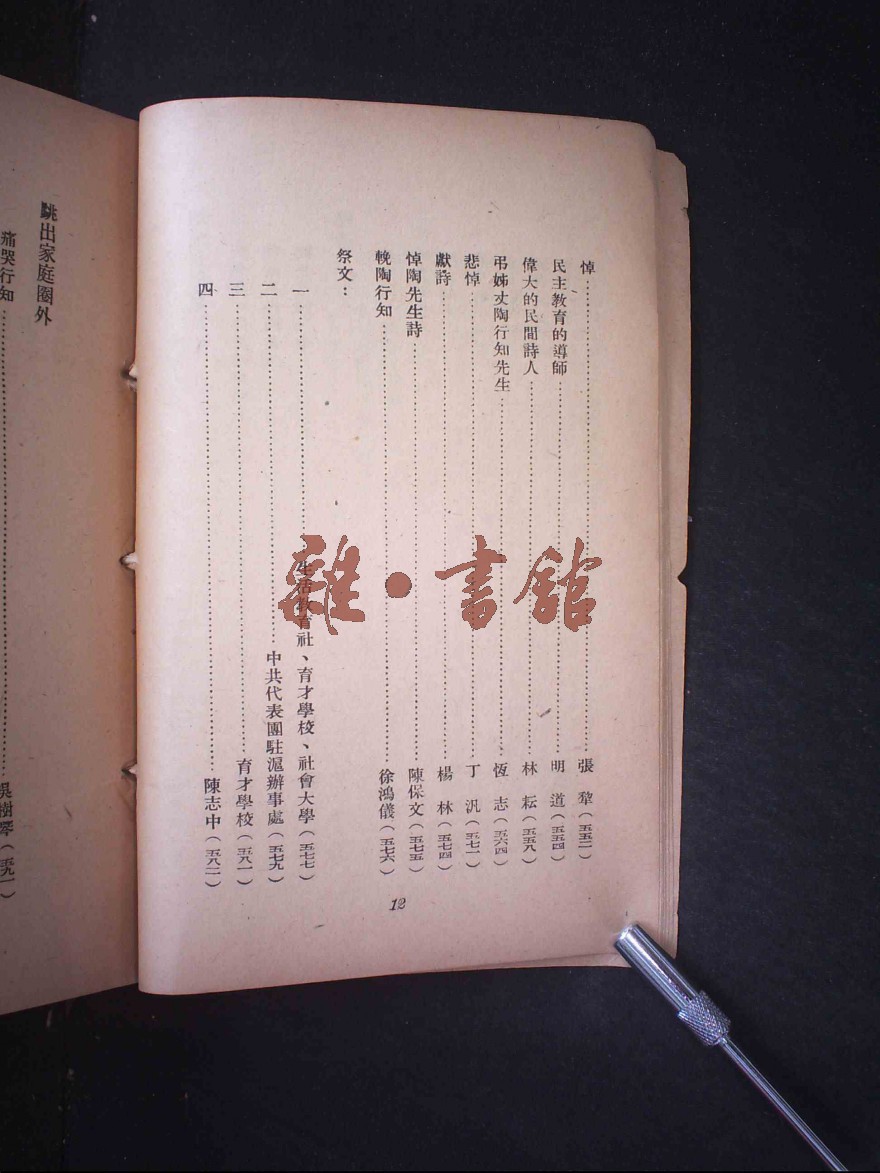 悼……張犂（五五二）
民主教育的導師……明道（五五四）
偉大的民間詩人……林耘（五五八）
弔姊丈陶行知先生……恆志（五六四）
悲悼……丁汎（五七一）
獻詩……楊林（五七四）
悼陶先生詩……陳保文（五七五）
輓陶行知……徐鴻儀（五七六）
祭文：
一……生活教育社、育才學校、社會大學（五七七）
二……中共代表團駐滬辦事處（五七九）
三……育才學校（五八一）
四……陳志中（五八二）
12
跳出家庭圈外
痛哭行知……吳樹琴（五九一）
雜·書館